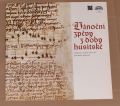 Vánoční
zpěvy
z doby
husitské